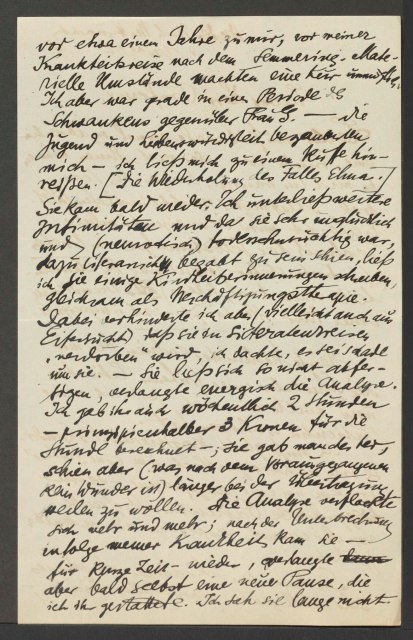 vor etwa einem Jahre zu mir, vor meiner
Krankheitsreise nach dem Semmering. Mate-
rielle Umstände machten eine Kur unmögl.
Ich aber war grade in einer Periode des
Schwankens gegenüber Frau G. — die
Jugend und Liebenswürdigkeit bezauberten
mich — ich ließ mich zu einem Kusse hin-
reißen. [Die Wiederholung des Falles Elma.]
Sie kam bald wieder. Ich unterließ weitere
Intimitäten und da sie sehr unglücklich
und (neurotisch) todessehnsüchtig war,
dazu literarisch begabt zu sein schien, ließ
ich sie einige Kindheitserinnerungen schreiben,
gleichsam als Beschäftigungstherapie.
Dabei verhinderte ich aber (vielleicht auch aus
Eifersucht) daß sie in Literatenkreisen
„verdorben" wird, ich dachte, es sei schade
um sie. — Sie ließ sich so nicht abfer-
tigen, verlangte energisch die Analyse.
Ich gab ihr auch wöchentlich 2 Stunden
— prinzipienhalber 3 Kronen für die
Stunde berechnet —; sie gab manches her,
schien aber (was nach dem Vorausgegangenen
kein Wunder ist) länger bei der Übertragung
weilen zu wollen. Die Analyse verflachte
sich mehr und mehr; nach der Unterbrechung
infolge meiner Krankheit kam sie —
für kurze Zeit — wieder, verlangte
aber bald selbst eine neue Pause, die
ich ihr gestattete. Ich sah sie lange nicht.